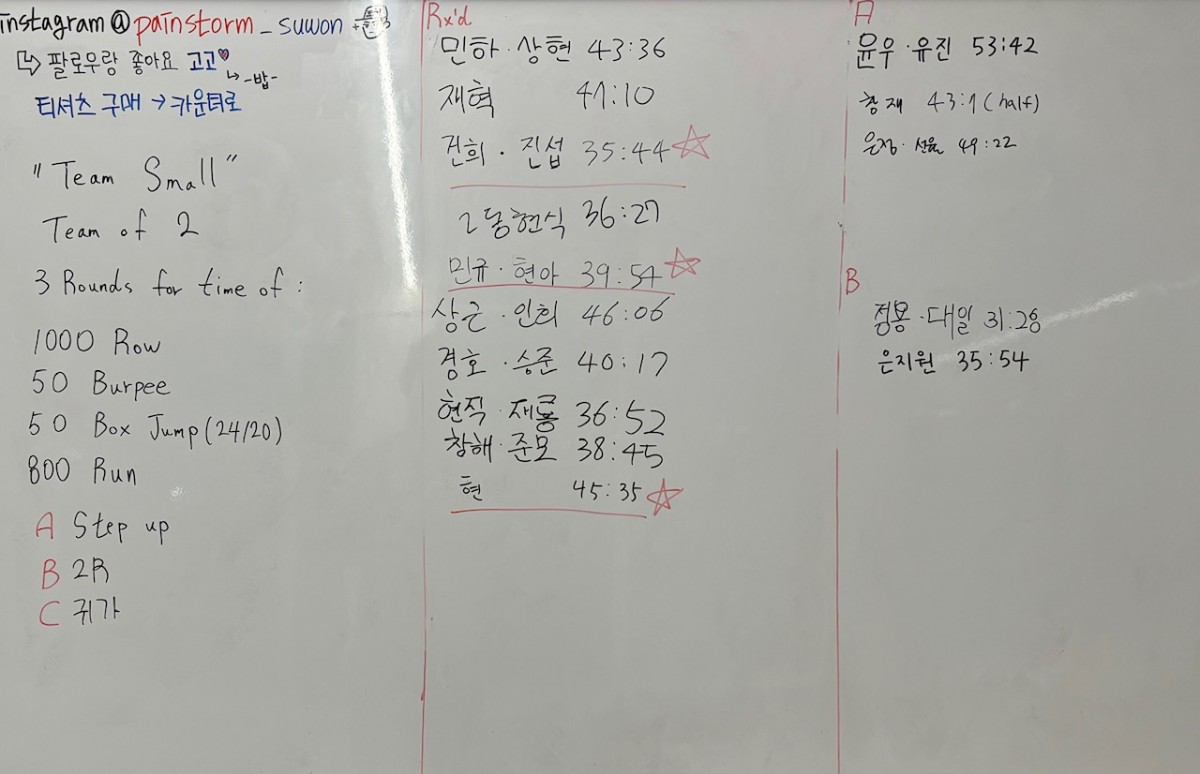 instagram @ painstorm_suwon
↳ 팔로우랑 좋아요 고고♥
↳ -밥-
티셔츠 구매 → 카운터로
"Team Small"
Team of 2
3 Rounds for time of :
1000 Row
50 Burpee
50 Box Jump (24/20)
800 Run
A Step up
B 2R
C 귀가
Rx'd
민하 · 상현 43:36
재혁 41:10
건희 · 진섭 35:44 ☆
2동현식 36:27
민규 · 현아 39:54 ☆
상근 · 인희 46:06
경호 · 승준 40:17
현직 · 재룡 36:52
창해 · 준모 38:45
현 45:35 ☆
A
윤우 · 유진 53:42
창재 43:1 (half)
은정 · 49:22
B
정용 · 대일 31:28
은지원 35:54